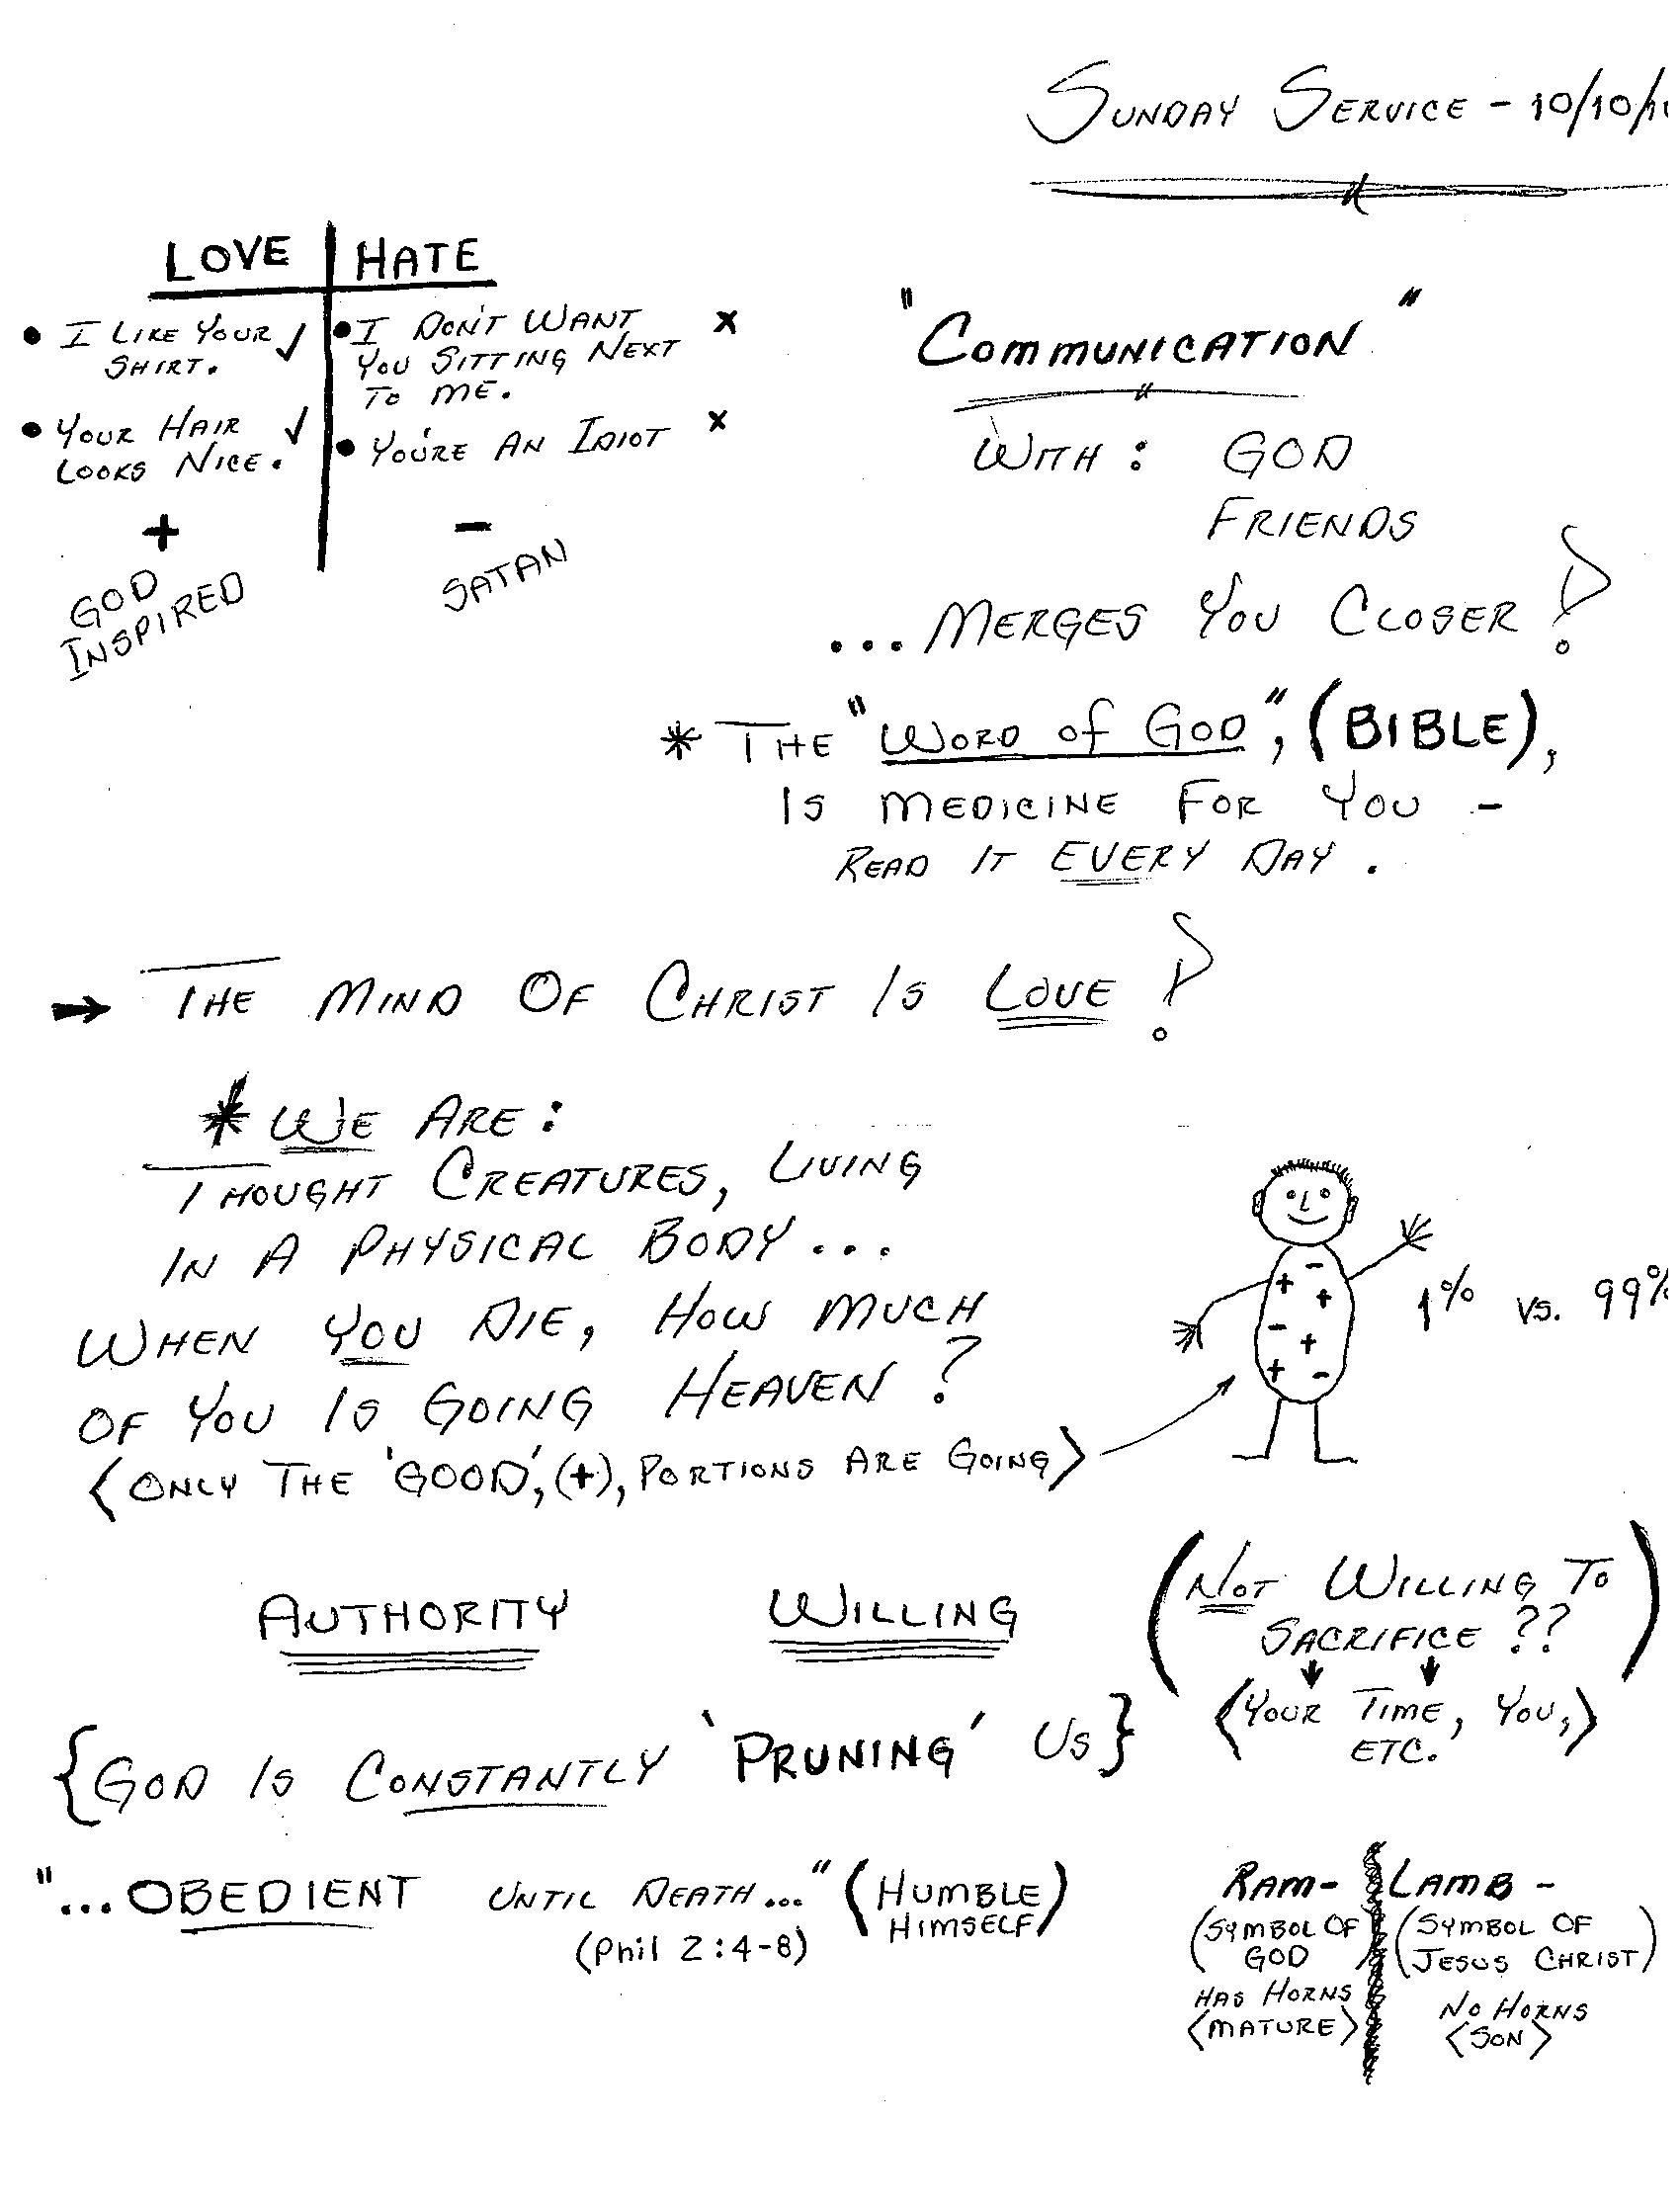 SUNDAY SERVICE - 10/10/
LOVE | HATE
• I LIKE YOUR ✓
SHIRT.
• YOUR HAIR ✓
LOOKS NICE.
+
GOD
INSPIRED
• I DON'T WANT X
YOU SITTING NEXT
TO ME.
• YOU'RE AN IDIOT X
-
SATAN
"COMMUNICATION"
WITH: GOD
FRIENDS
...MERGES YOU CLOSER!
* THE "WORD OF GOD", (BIBLE),
IS MEDICINE FOR YOU -
READ IT EVERY DAY.
→ THE MIND OF CHRIST IS LOVE!
* WE ARE:
THOUGHT CREATURES, LIVING
IN A PHYSICAL BODY...
WHEN YOU DIE, HOW MUCH
OF YOU IS GOING HEAVEN?
<ONLY THE 'GOOD', (+), PORTIONS ARE GOING>
- + + - + + -
1% VS. 99%
AUTHORITY WILLING
(NOT WILLING TO
SACRIFICE ??)
<YOUR TIME, YOU,>
ETC.
{GOD IS CONSTANTLY 'PRUNING' US}
"...OBEDIENT UNTIL DEATH..." (HUMBLE
HIMSELF)
(Phil 2:4-8)
RAM-
(SYMBOL OF
GOD)
HAS HORNS
<MATURE>
LAMB -
(SYMBOL OF
JESUS CHRIST)
NO HORNS
<SON>